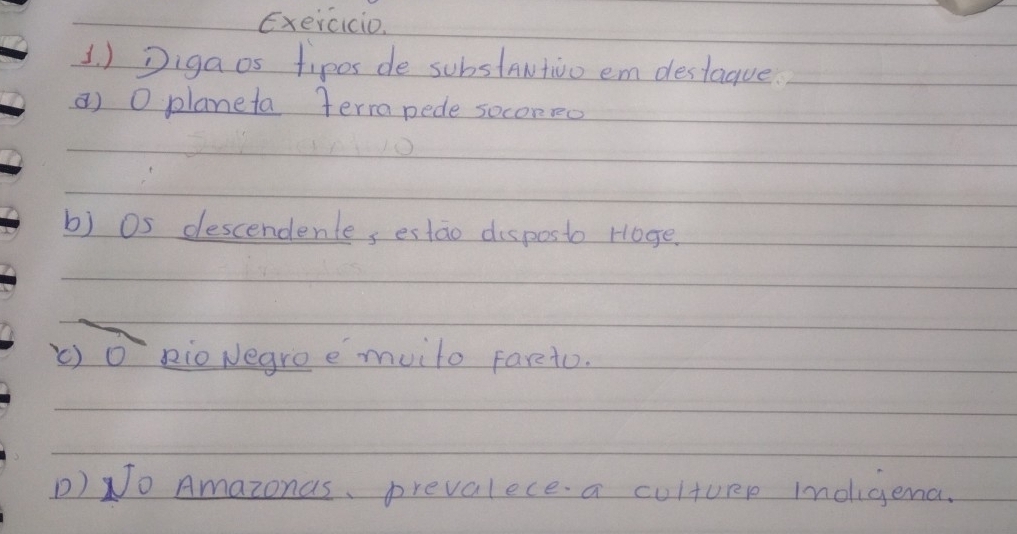 Exercício.
1.) Diga os tipos de substantivo em destaque.
a) O planeta terra pede socorro
b) Os descendente, estão disposto Hoge.
c) O Rio Negro é muito Farto.
D) No Amazonas, prevalece a cultura Indígena.